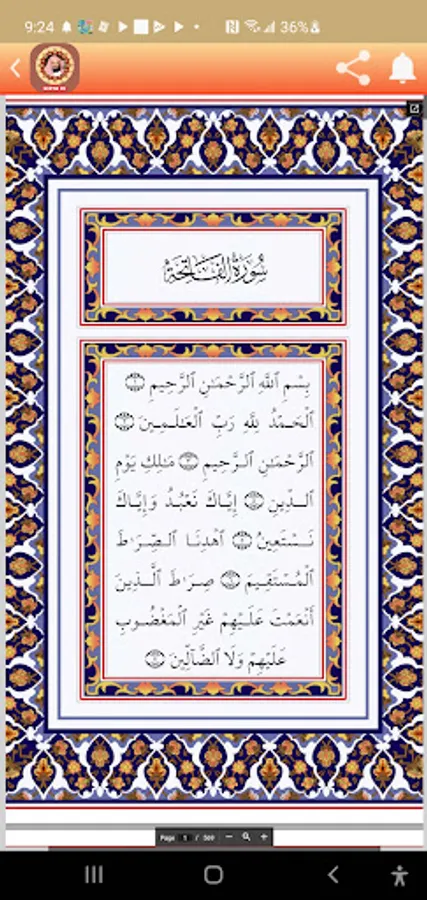 9:24
36%
سُورَةُ الفَاتِحَةِ
بِسْمِ ٱللَّهِ ٱلرَّحْمَٰنِ ٱلرَّحِيمِ ۝١
ٱلْحَمْدُ لِلَّهِ رَبِّ ٱلْعَٰلَمِينَ ۝٢
ٱلرَّحْمَٰنِ ٱلرَّحِيمِ ۝٣ مَٰلِكِ يَوْمِ
ٱلدِّينِ ۝٤ إِيَّاكَ نَعْبُدُ وَإِيَّاكَ
نَسْتَعِينُ ۝٥ ٱهْدِنَا ٱلصِّرَٰطَ
ٱلْمُسْتَقِيمَ ۝٦ صِرَٰطَ ٱلَّذِينَ
أَنْعَمْتَ عَلَيْهِمْ غَيْرِ ٱلْمَغْضُوبِ
عَلَيْهِمْ وَلَا ٱلضَّآلِّينَ ۝٧
Page 1 / 569